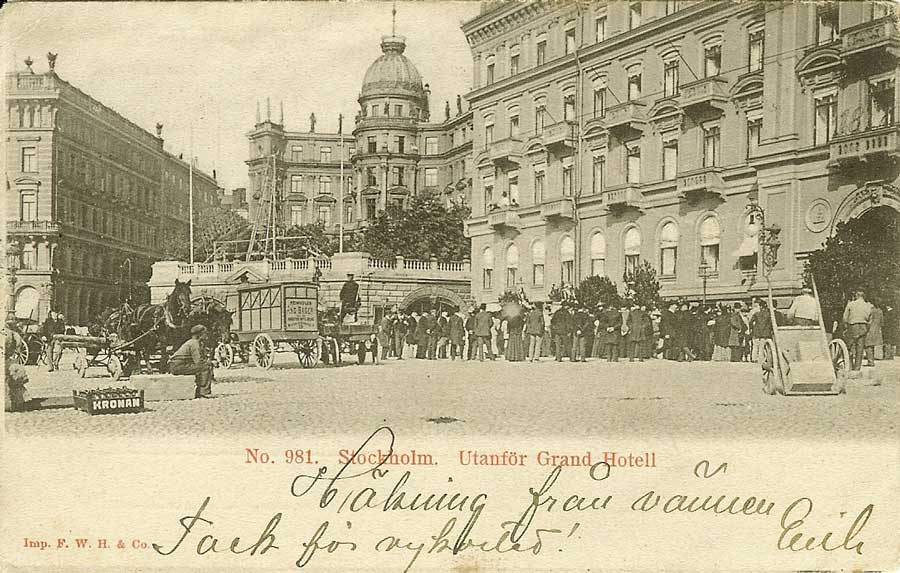 KRONAN
No. 981. Stockholm. Utanför Grand Hotell
Hälsning från vännen
Imp. F. W. H. & Co.
Tack för vykortet! Emil